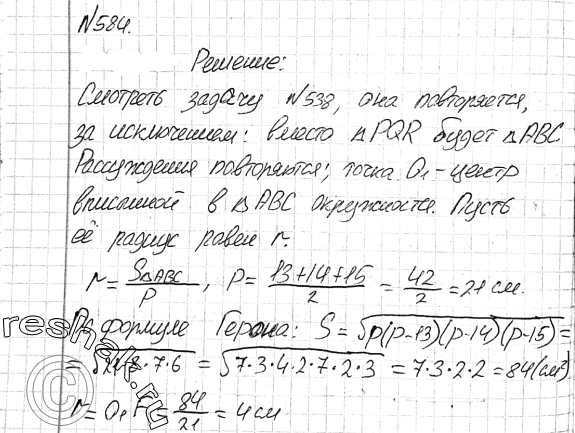 №584.
Решение:
Смотреть задачу №538, она повторяется,
за исключением: вместо △PQR будет △ABC
Рассуждения повторяются; точка O₁ - центр
вписанной в △ABC окружности. Пусть
её радиус равен r.
r = S△ABC / P, P = (13+14+15)/2 = 42/2 = 21 см.
По формуле Герона: S = √(p(p-13)(p-14)(p-15)) =
= √(21·8·7·6) = √(7·3·4·2·7·2·3) = 7·3·2·2 = 84 (см²)
r = O₁F = 84/21 = 4 см